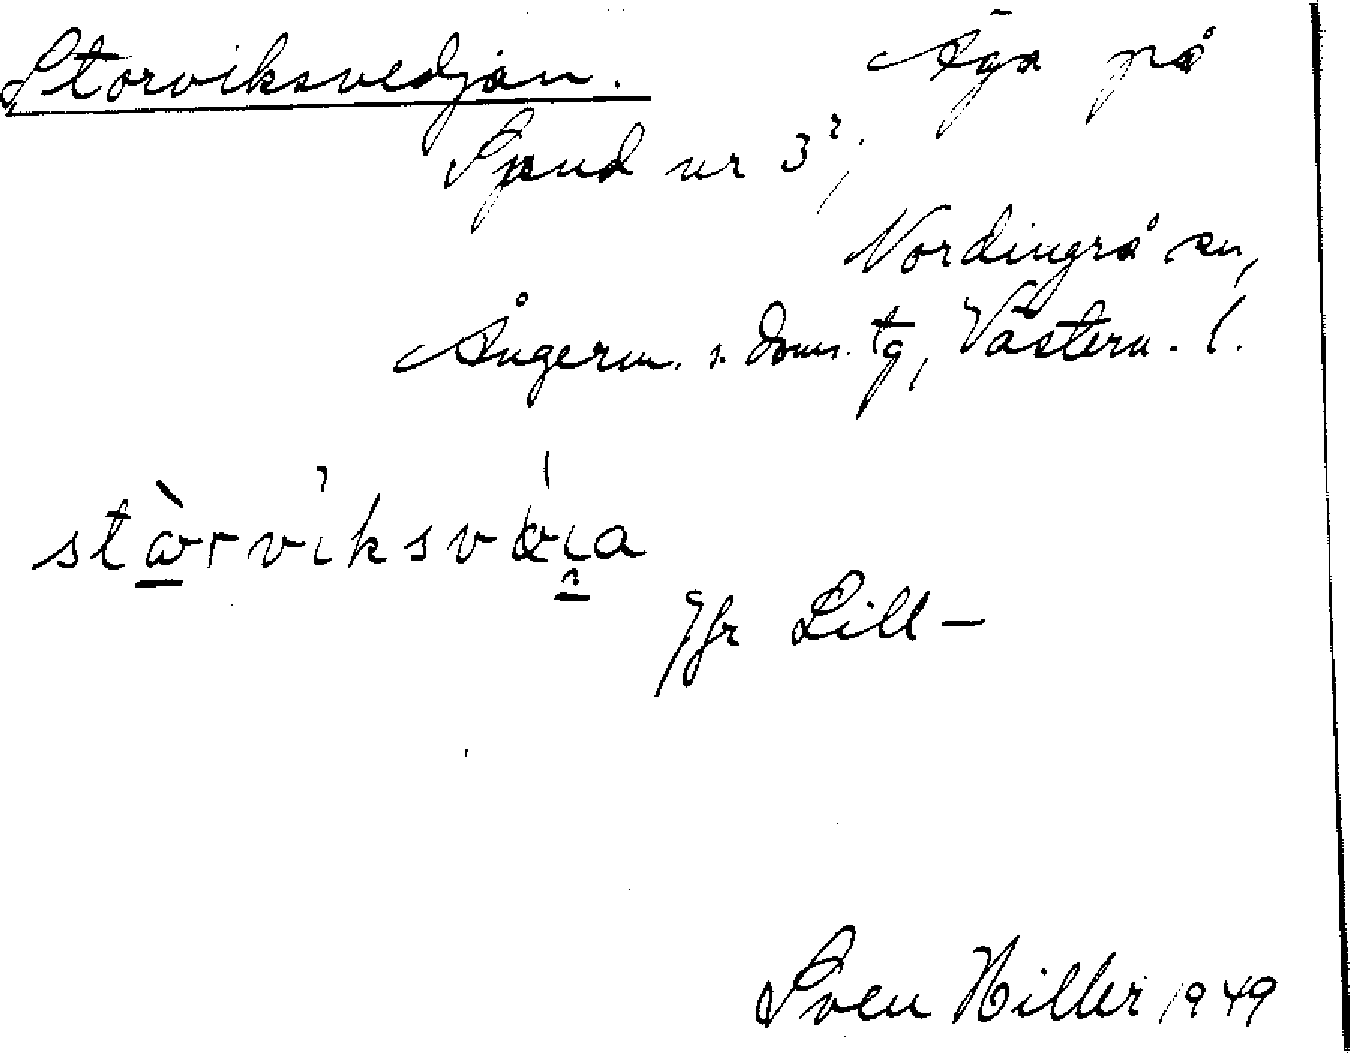 Storviksvedjan. Äga på
Spjud nr 3²;
Nordingrå sn,
Ångerm. s. doms. tg, Västern. l.
Jfr Lill-
Sven Hiller 1949